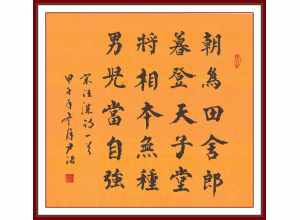 朝為田舍郎
暮登天子堂
將相本無種
男兒當自強
宋汪洙詩一首
甲午年